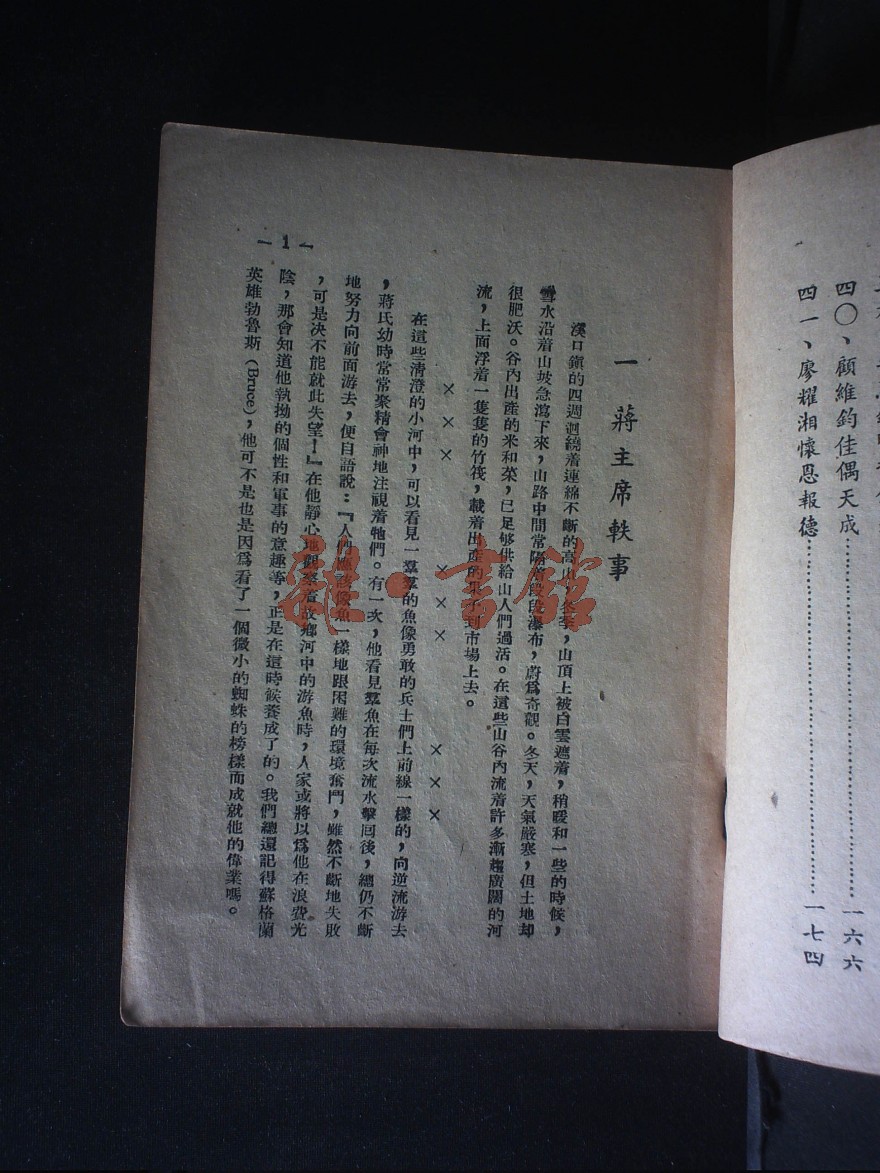 四〇、顧維鈞佳偶天成……一六六
四一、廖耀湘懷恩報德……一七四
一 蔣主席軼事
溪口鎮的四週迴繞着連綿不斷的高山，冬季，山頂上被白雲遮着，稍暖和一些的時候，
雪水沿着山坡急瀉下來，山路中間常隔着段段瀑布，蔚爲奇觀。冬天，天氣嚴寒，但土地却
很肥沃。谷內出產的米和菜，已足够供給山人們過活。在這些山谷內流着許多漸趨廣闊的河
流，上面浮着一隻隻的竹筏，載着出產的果不到市場上去。
××× ××× ×××
在這些清澄的小河中，可以看見一羣羣的魚像勇敢的兵士們上前線一樣的，向逆流游去
，蔣氏幼時常常聚精會神地注視着牠們。有一次，他看見羣魚在每次流水擊囘後，總仍不斷
地努力向前面游去，便自語說：『人們應該像魚一樣地跟困難的環境奮鬥，雖然不斷地失敗
，可是决不能就此失望！』在他靜心地觀察着故鄉河中的游魚時，人家或將以爲他在浪費光
陰，那會知道他執拗的個性和軍事的意趣等，正是在這時候養成了的。我們總還記得蘇格蘭
英雄勃魯斯（Bruce），他可不是也是因爲看了一個微小的蜘蛛的榜樣而成就他的偉業嗎。
— 1 —
雜·書館